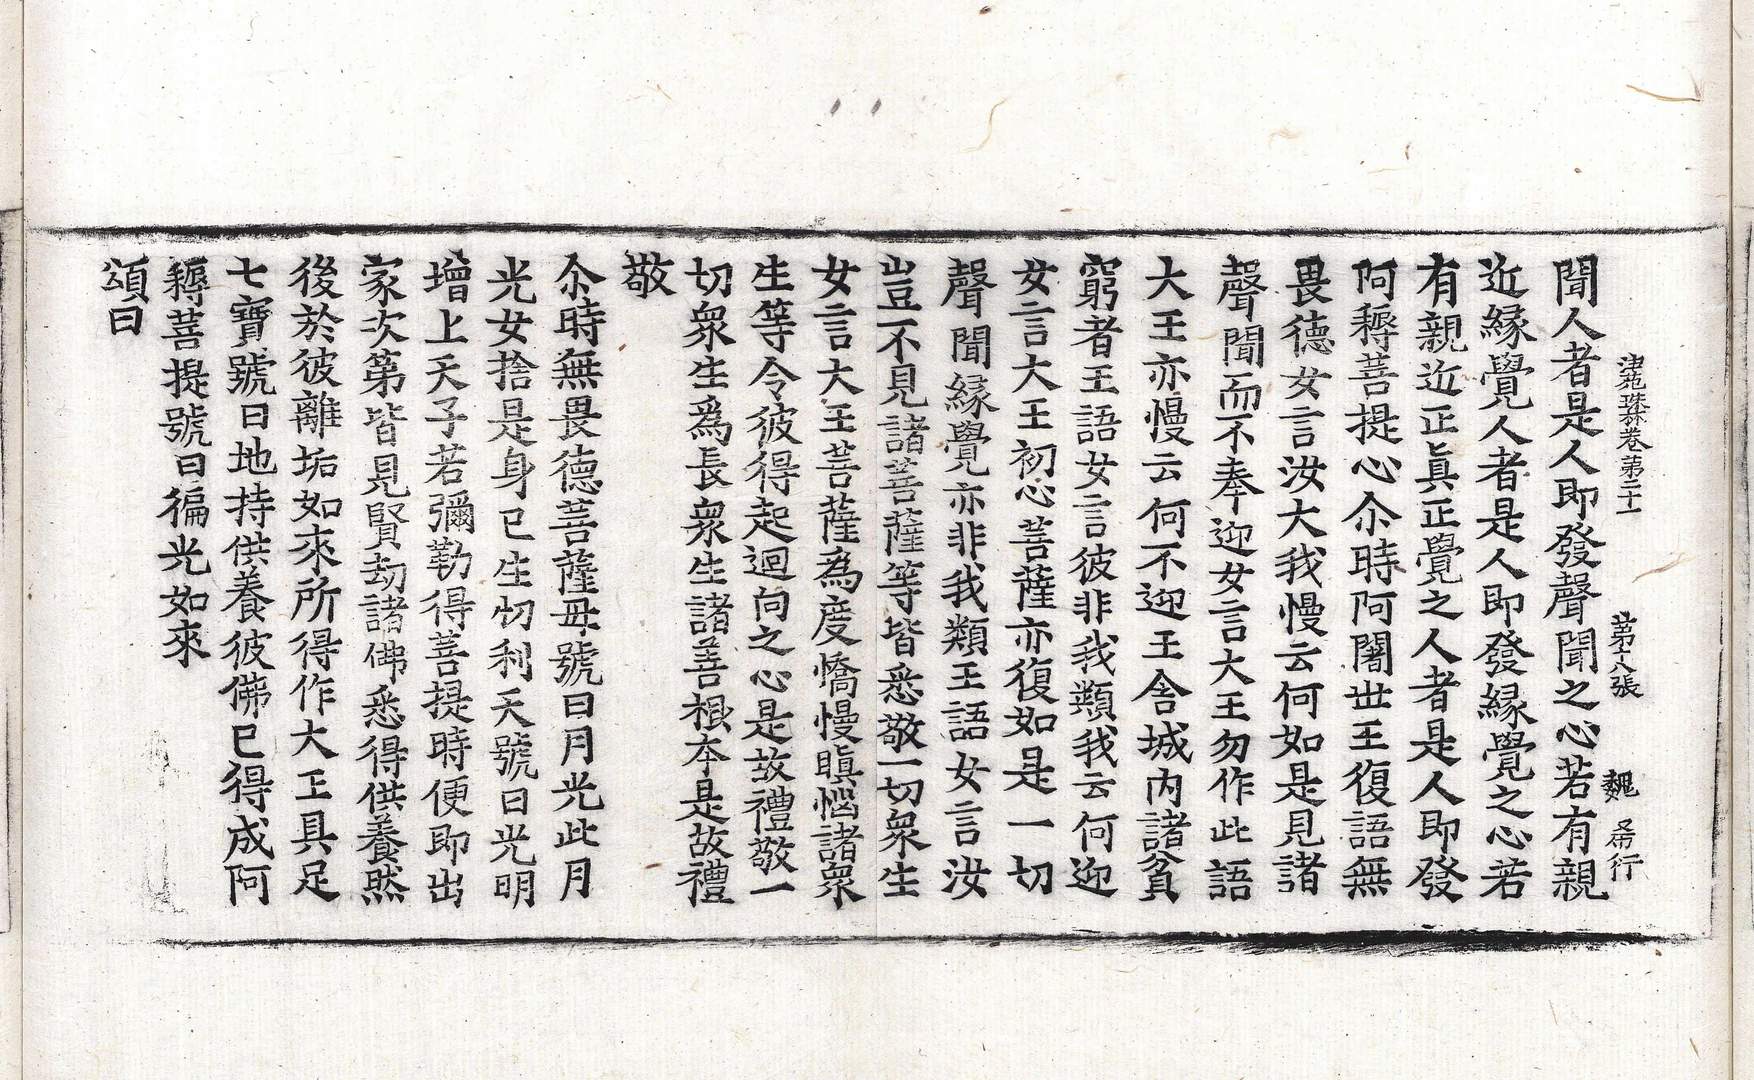 法苑珠林卷第二十一　第十八張　魏　行
聞人者是人即發聲聞之心若有親
近緣覺人者是人即發緣覺之心若
有親近正真正覺之人者是人即發
阿耨菩提心尒時阿闍世王復語無
畏德女言汝大我慢云何如是見諸
聲聞而不奉迎女言大王勿作此語
大王亦慢云何不迎王舍城內諸貧
窮者王語女言彼非我類我云何迎
女言大王初心菩薩亦復如是一切
聲聞緣覺亦非我類王語女言汝
豈不見諸菩薩等皆悉敬一切衆生
女言大王菩薩為度憍慢瞋惱諸衆
生等令彼得起迴向之心是故禮敬一
切衆生爲長衆生諸善根本是故禮
敬
尒時無畏德菩薩毋號曰月光此月
光女捨是身已生忉利天號曰光明
增上天子若彌勒得菩提時便即出
家次第皆見賢劫諸佛悉得供養然
後於彼離垢如來所得作大王具足
七寶號曰地持供養彼佛已得成阿
耨菩提號曰徧光如來
頌曰